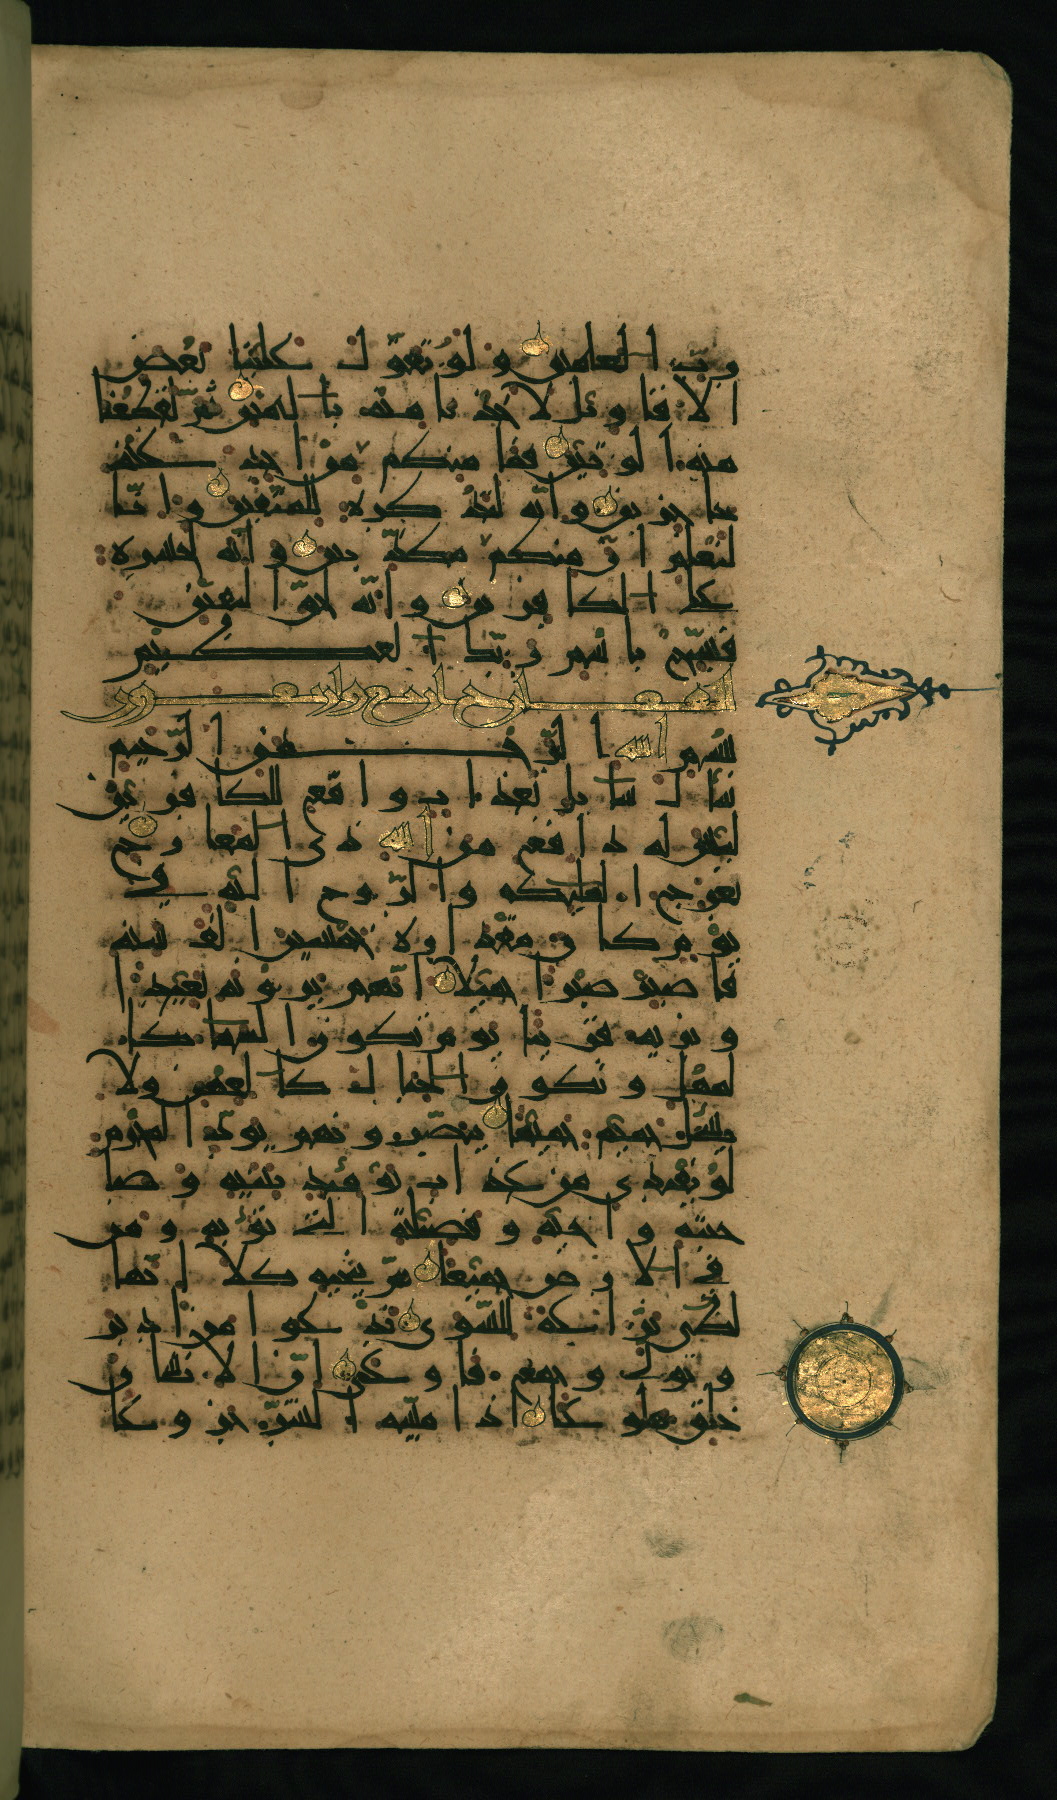 رب العالمين ولو تقول علينا بعض
الاقاويل لاخذنا منه باليمين ثم لقطعنا
منه الوتين فما منكم من احد عنه
حاجزين وانه لتذكرة للمتقين وانا
لنعلم ان منكم مكذبين وانه لحسرة
على الكافرين وانه لحق اليقين
فسبح باسم ربك العظيم
المعارج اربع واربعون
بسم الله الرحمن الرحيم
سأل سائل بعذاب واقع للكافرين
ليس له دافع من الله ذى المعارج
تعرج الملئكة والروح اليه فى
يوم كان مقداره خمسين الف سنة
فاصبر صبرا جميلا انهم يرونه بعيدا
ونريه قريبا يوم تكون السماء كا
لمهل وتكون الجبال كالعهن ولا
يسئل حميم حميما يبصرونهم يود المجرم
لو يفتدى من عذاب يومئذ ببنيه وصا
حبته واخيه وفصيلته التى تؤيه ومن
فى الارض جميعا ثم ينجيه كلا انها
لظى نزاعة للشوى تدعوا من ادبر
وتولى وجمع فاوعى ان الانسان
خلق هلوعا اذا مسه الشر جزوعا